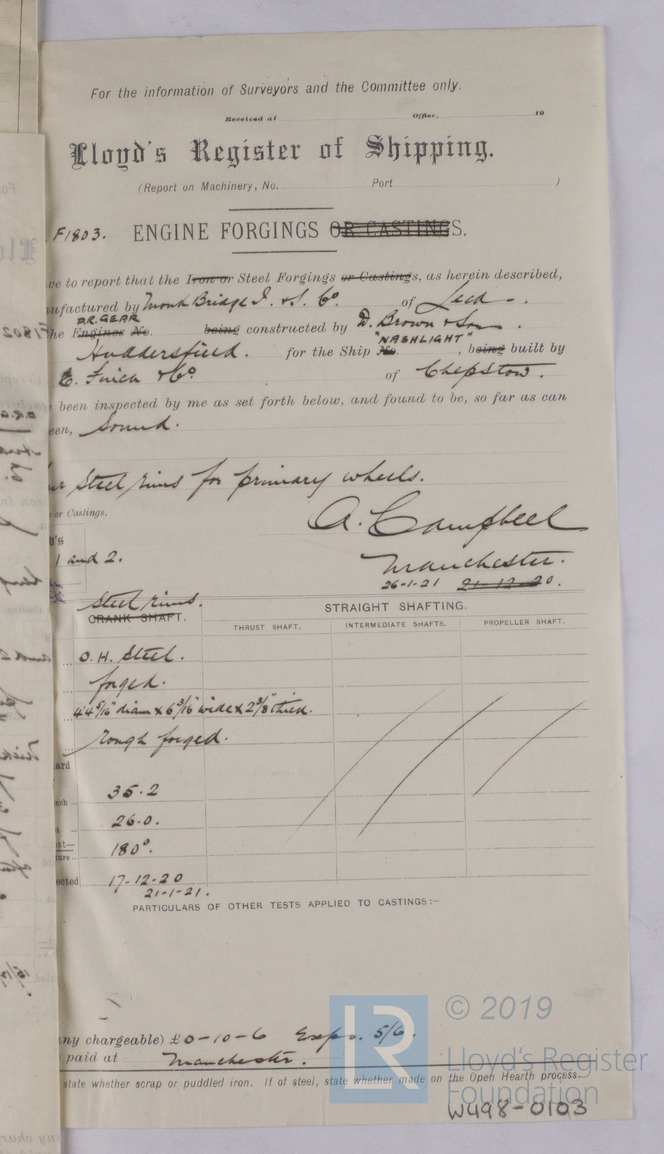 For the information of Surveyors and the Committee only.
Received at Office, 19
Lloyd's Register of Shipping.
(Report on Machinery, No. Port )
F1803. ENGINE FORGINGS OR CASTINGS.
ve to report that the Iron or Steel Forgings or Castings, as herein described,
ufactured by Monk Bridge I. & S. Co. of Leeds.
D.R. GEAR
he Engines No. being constructed by D. Brown & Sons.
"NASHLIGHT"
Huddersfield. for the Ship No. , being built by
E. Finch & Co of Chepstow.
been inspected by me as set forth below, and found to be, so far as can
een, Sound.
Steel rims for primary wheels.
or Castings.
A. Campbell
1 and 2.
Manchester.
26-1-21 21-12-20.
Steel rims.
CRANK SHAFT.
STRAIGHT SHAFTING.
THRUST SHAFT. INTERMEDIATE SHAFTS. PROPELLER SHAFT.
O.H. Steel.
forged.
4'4 9/16" diam x 6 3/16" wide x 2 3/8" thick.
rough forged.
35.2
26.0.
180°.
ected 17-12-20
21-1-21.
PARTICULARS OF OTHER TESTS APPLIED TO CASTINGS:—
ny chargeable) £0-10-6 Exps. 5/6.
paid at Manchester.
state whether scrap or puddled iron. If of steel, state whether made on the Open Hearth process
© 2019
Lloyd's Register
Foundation
LR
W498-0103